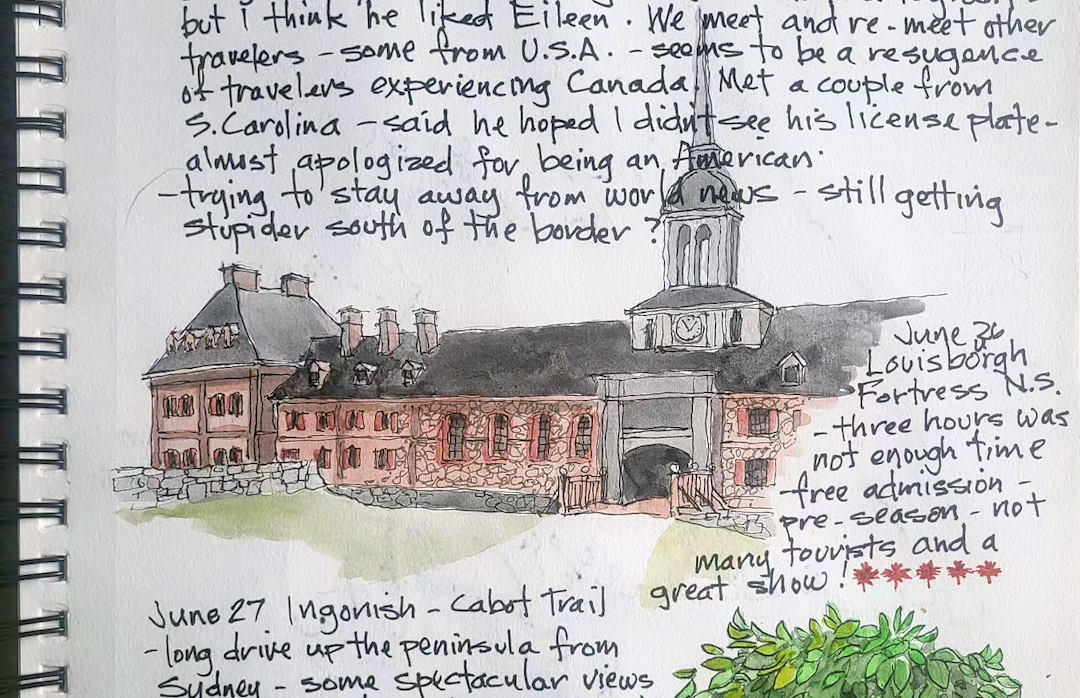 but i think he liked Eileen. We meet and re-meet other
travelers - some from U.S.A. - seems to be a resugence
of travelers experiencing Canada. Met a couple from
S.Carolina - said he hoped I didn't see his license plate -
almost apologized for being an American.
- trying to stay away from world news - still getting
stupider south of the border?
June 26
Louisborgh
Fortress N.S.
- three hours was
not enough time
- free admission -
pre-season - not
many tourists and a
great show!
June 27 Ingonish - Cabot Trail
- long drive up the peninsula from
Sydney - some spectacular views